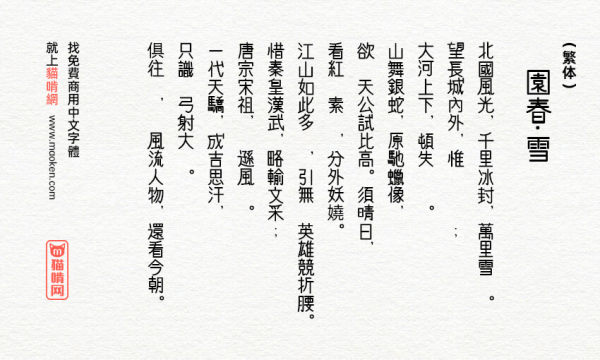 (繁体)
園春·雪
北國風光,千里冰封,萬里雪 。
望長城內外,惟 ;
大河上下,頓失 。
山舞銀蛇,原馳蠟像,
欲 天公試比高。須晴日,
看紅 素 ,分外妖嬈。
江山如此多 ,引無 英雄競折腰。
惜秦皇漢武,略輸文采;
唐宗宋祖, 遜風 。
一代天驕,成吉思汗,
只識 弓射大 。
俱往 , 風流人物,還看今朝。
找免費商用中文字體
就上貓啃網 www.mooken.com
猫啃网